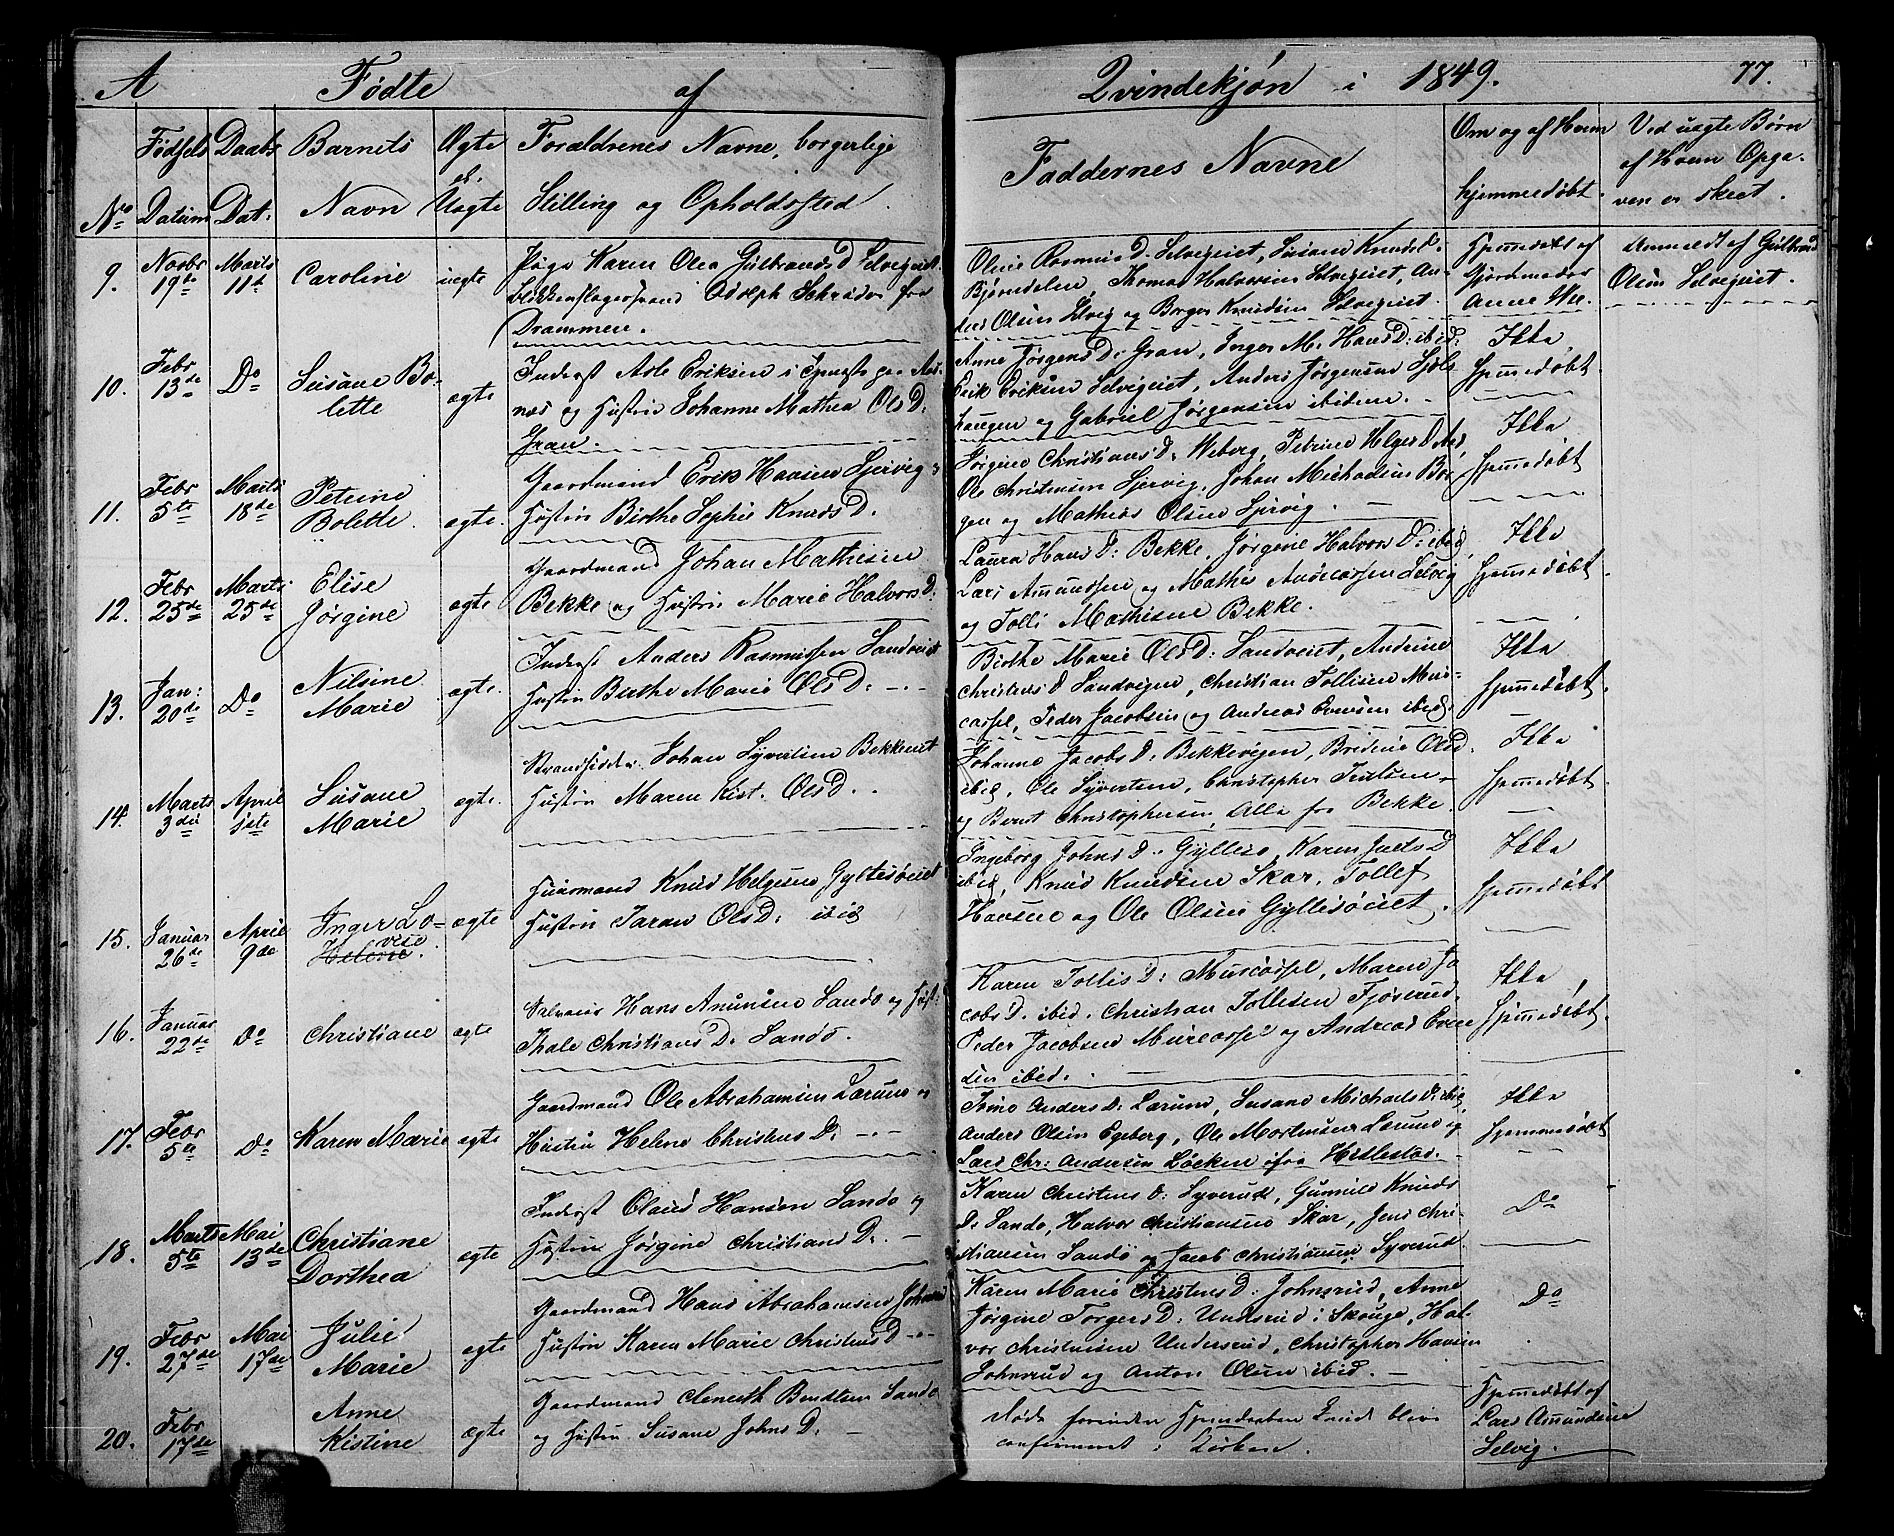 A Fødte af Qvindekjøn i 1849. 77.
No Fødsels Datum Daabs Dat. Barnets Navn Ægte el. Uægte Forældrenes Navne, borgerlige Stilling og Opholdssted. Faddernes Navne Om og af Hvem hjemmedøbt. Ved uægte Børn af Hvem Opgaven er skeet.
9. Novbr 19de Marts 11te Caroline uegte Pige Karen Olea Gulbrands D Selvigeiet.
Blikkenslagersvend Adolph fra
Drammen.
Oline Rasmus D. Selvigeiet, Susane Knuds D.
Bjørndalen, Thomas Halvorsen Selvigeiet, An-
ders Olsen Selvig og Borger Knudsen Selvigeiet.
Hjemedøbt af
Gjordmoder
Anne
Anmeldt af Gulbrand
Olsen Selvigeiet.
10. Febr 13de Do Susane Bo-
lette ægte
Inderst Asle Eriksen i paa Aas-
næs og Hustru Johanne Mathea Ols D.
Gran.
Anne Jørgens D. Gran, Inger M. Hans D. ibid.
Erik Eriksen Selvigeiet, Anders Jørgensen
haugen og Gabriel Jørgensen ibidem.
Ikke
hjemedøbt
11. Febr 5te Marts 18de Petrine
Bolette ægte.
Gaardmand Erik Hansen Sjervig &
Hustru Birthe Sophie Knuds D.
Jørgine Christians D. Weberg, Petrine Helges D. Aas,
Ole Christensen Sjervig, Johan Michaelsen Bor-
gen og Mathias Olsen Sjervig.
Ikke
hjemedøbt
12. Febr 25de Marts 25de Elise
Jørgine ægte
Gaardmand Johan Mathisen
Bekke og Hustru Marie Halvors D.
Laura Hans D: Bekke, Jørgine Halvors D: ibid,
Lars Amundsen og Mathis Andreassen Selvig
og Tolli Mathisen Bekke.
Ikke
hjemedøbt.
13. Jan: 20de Do Nilsine
Marie ægte.
Inderst Anders Rasmussen Sandveiet
Hustru Berthe Marie Ols D.
Birthe Marie Ols D: Sandveiet, Andrine
Christens D Sandvigen, Christian Tollisen Mus-
cassel, Peder Jacobsen og Andreas Evensen ibid.
Ikke
hjemedøbt.
14. Marts 3die April 1ste Susane
Marie ægte.
Strandsidder Johan Syversen Bekkeveiet
Hustru Maren Kist. Ols D.
Johanne Jacobs D. Bekkevigen, Bredine Ols D.
ibid, Ole Syversen, Christopher
og Bernt Christophersen, Alle fra Bekke.
Ikke
hjemedøbt.
15. Januar 26de April 9de Inger Lo-
vise
Helene. ægte
Huusmand Knud Helgesen Gyltesøeiet
Hustru Taran Ols D. ibid
Ingeborg Johns D. Gyllesø, Karen D
ibid, Knud Knudsen Skar, Tollef
Hansen og Ole Olsen Gyllesøeiet.
Ikke
hjemedøbt
16. Januar 22de Do Christiane ægte
Selveier Hans Amunsen Sandø og Hust:
Thale Christians D. Sandø.
Karen Tollis D: Muscassel, Maren Ja
cobs D. ibid. Christian Tollisen Fjøserud,
Peder Jacobsen Muscassel og Andreas Even
sen ibid.
Ikke
hjemedøbt.
17. Febr 5te Do Karen Marie ægte
Gaardmand Ole Abrahamsen Lærum og
Hustru Helene Christens D.
Anders D. Lærum, Susane Michaels D. ibid,
Anders Olsen Egeberg, Ole Mortensen Lærum og
Lars Chr: Andersen Løcken fra Hillestad.
Ikke
hjemmedøbt
18. Marts 5te Mai 13de Christiane
Dorthea ægte
Inderst Olaus Hansen Sandø og
Hustru Jørgine Christians D.
Karen Christens D. Syverud, Gunnild Knuds
D. Sandø, Halvor Christiansen Skar, Jens Chri-
stiansen Sandø og Jacob Christiansen Syverud.
Do
19. Febr 27de Mai 17de Julie
Marie ægte
Gaardmand Hans Abrahamsen Johnsrud
Hustru Karen Marie Christens D
Karen Marie Christens D. Johnsrud, Anne
Jørgine Torgers D. Undsrud i Skouge, Hal-
vor Christensen Undersrud, Christopher Hansen
Johnsrud og Anton Olsen ibid.
Do
20. Febr 17de Anne
Kistine ægte
Gaardmand Clemeth Bendtsen Sandø
og Hustru Susane Johns D.
Døde forinden Hjemdaaben kunde blive
confirmeret i Kirken.
Hjemedøbt af
Lars Amundsen
Selvig.